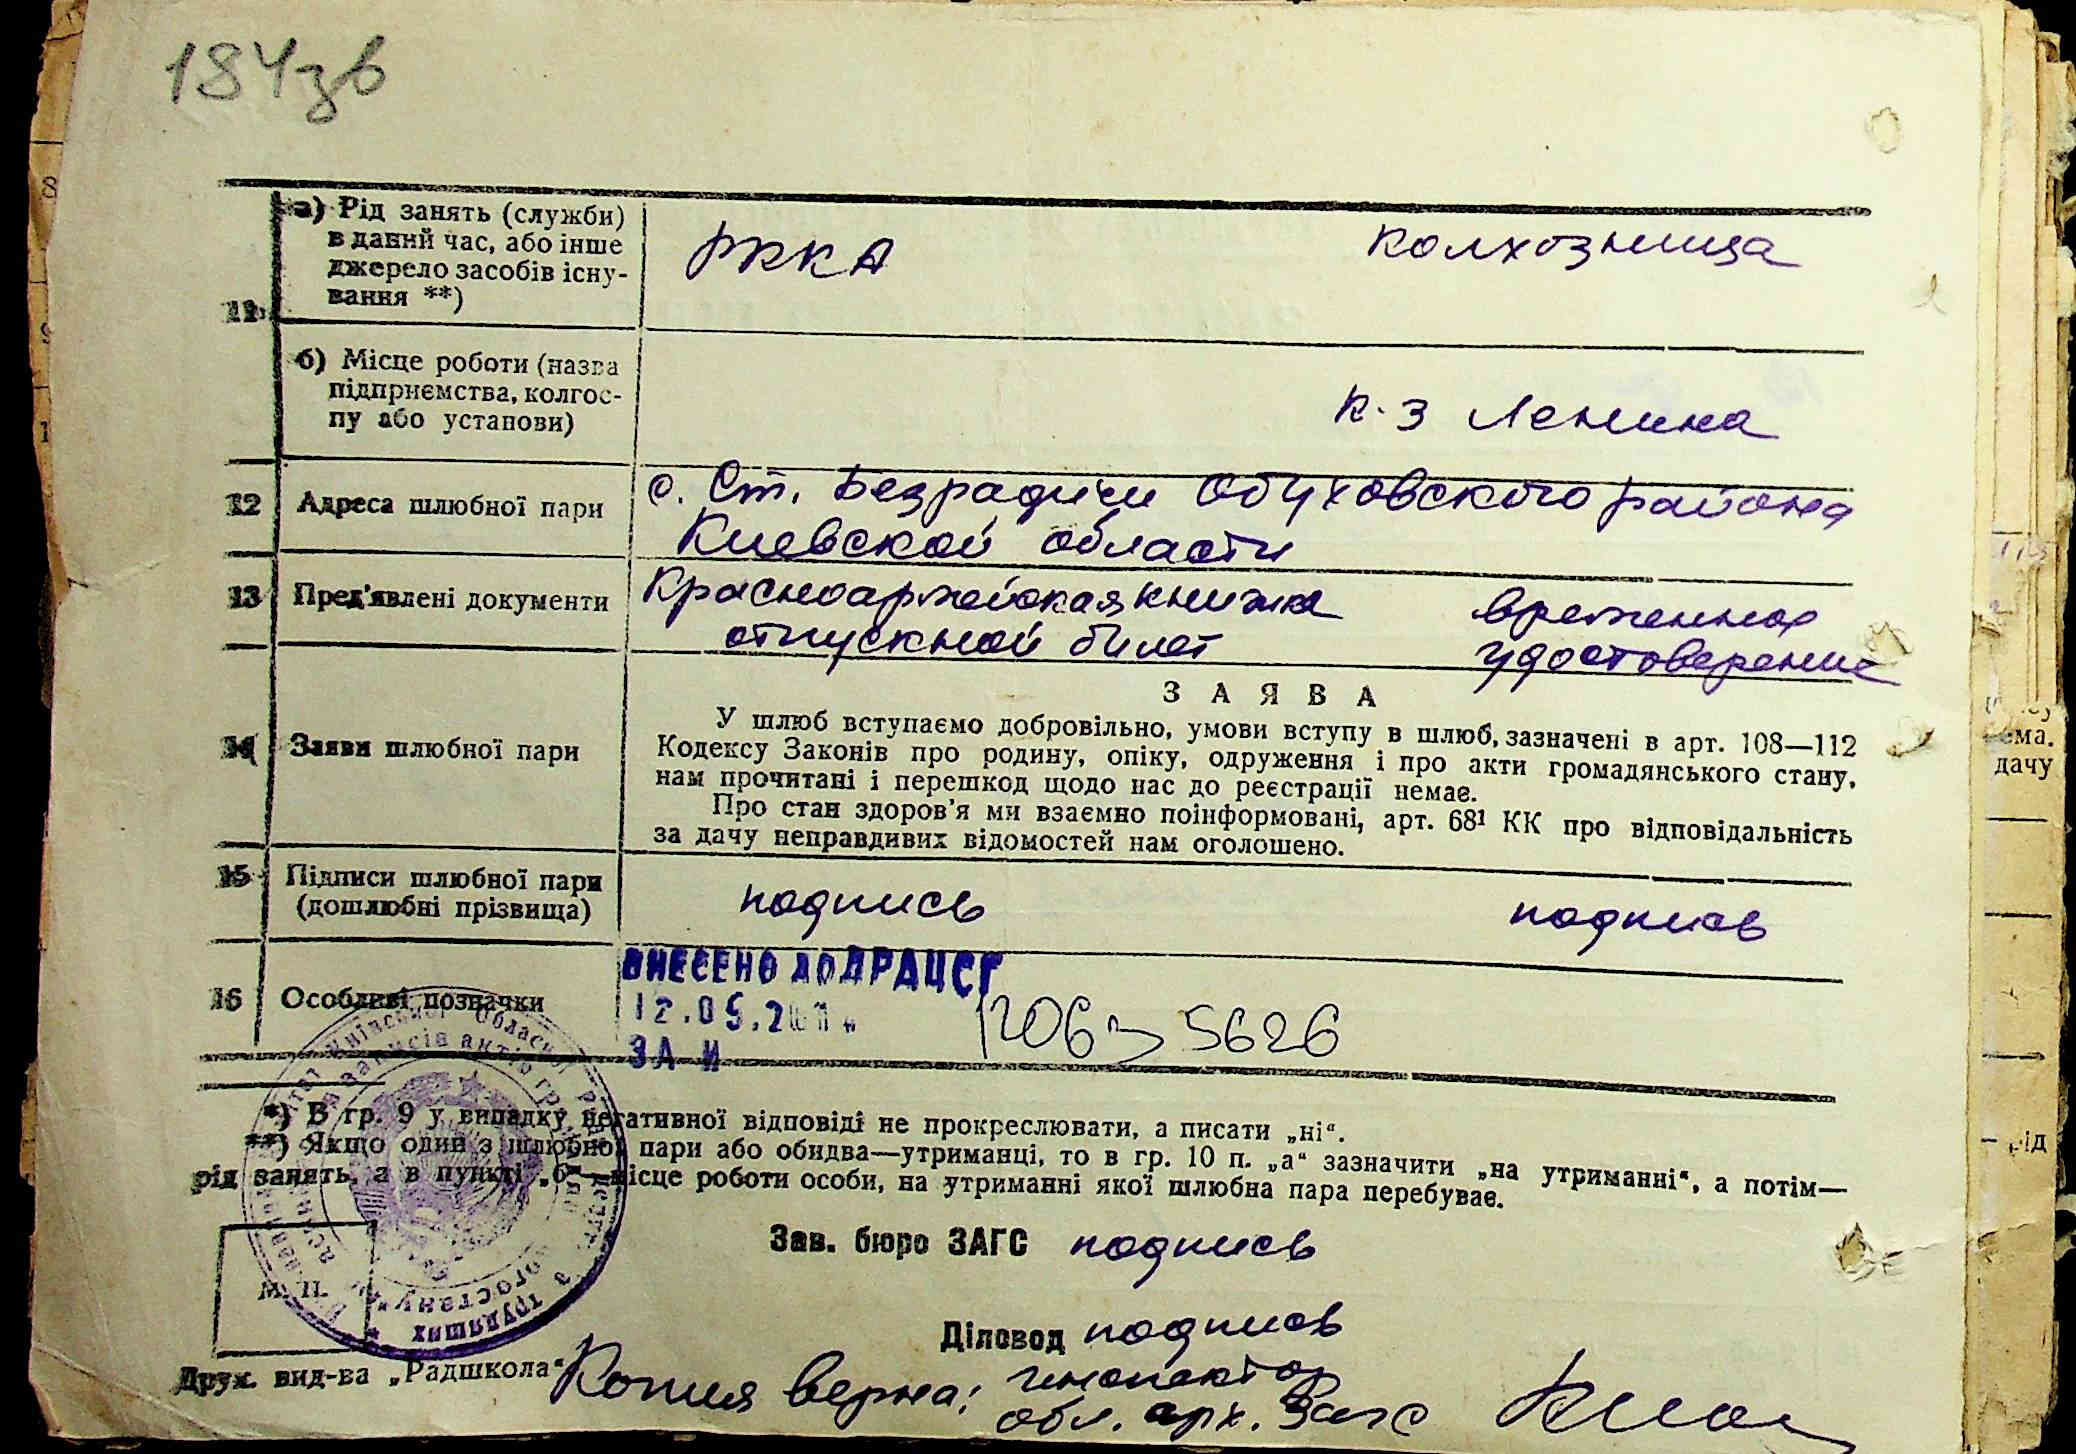 184зв
а) Рід занять (служби)
в даний час, або інше
джерело засобів існу-
вання **)
РККА
колхозница
11
б) Місце роботи (назва
підприємства, колгос-
пу або установи)
к-з Ленина
12
Адреса шлюбної пари
с. Ст. Безрадичи Обуховского района
Киевской области
13
Пред'явлені документи
Красноармейская книжка
отпускной билет
временное
удостоверение
14
Заяви шлюбної пари
ЗАЯВА
У шлюб вступаємо добровільно, умови вступу в шлюб, зазначені в арт. 108—112
Кодексу Законів про родину, опіку, одруження і про акти громадянського стану,
нам прочитані і перешкод щодо нас до реєстрації немає.
Про стан здоров'я ми взаємно поінформовані, арт. 68¹ КК про відповідальність
за дачу неправдивих відомостей нам оголошено.
15
Підписи шлюбної пари
(дошлюбні прізвища)
подпись
подпись
16
Особливі позначки
ВНЕСЕНО ДО ДРАЦСГ
12.05.20
ЗА И
5626
*) В гр. 9 у випадку негативної відповіді не прокреслювати, а писати „ні“.
**) Якщо один з шлюбної пари або обидва—утриманці, то в гр. 10 п. „а“ зазначити „на утриманні“, а потім—
рід занять, а в пункті „б“—місце роботи особи, на утриманні якої шлюбна пара перебуває.
Зав. бюро ЗАГС подпись
М. П.
Діловод подпись
Друк. вид-ва „Радшкола“
Копия верна: инспектор
обл. арх. Загс